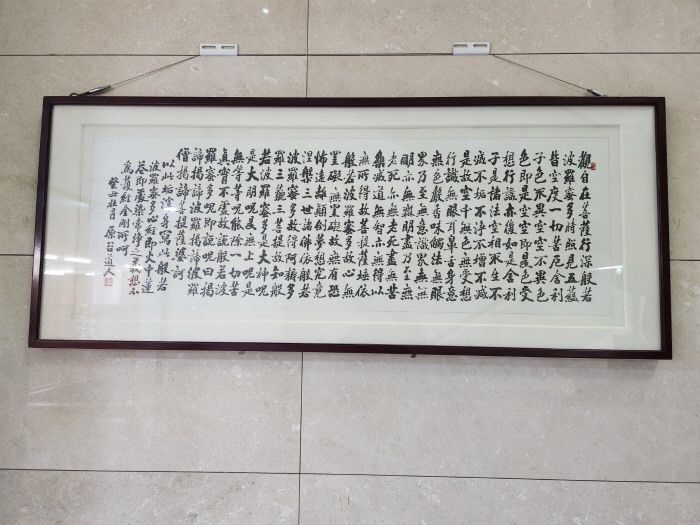 觀自在菩薩行深般若
波羅蜜多時照見五蘊
皆空度一切苦厄舍利
子色不異空空不異色
色即是空空即是色受
想行識亦復如是舍利
子是諸法空相不生不
滅不垢不淨不增不減
是故空中無色無受想
行識無眼耳鼻舌身意
無色聲香味觸法無眼
界乃至無意識界無無
明亦無無明盡乃至無
老死亦無老死盡無苦
集滅道無智亦無得以
無所得故菩提薩埵依
般若波羅蜜多故心無
罣礙無罣礙故無有恐
怖遠離顛倒夢想究竟
涅槃三世諸佛依般若
波羅蜜多故得阿耨多
羅三藐三菩提故知般
若波羅蜜多是大神呪
是大明呪是無上呪是
無等等呪能除一切苦
眞實不虛故說般若波
羅蜜多呪即說呪曰揭
諦揭諦波羅揭諦波羅
僧揭諦菩提薩婆訶
以此垢濁身寫此般若
波羅蜜多心經即火中蓮
即塵染常淨之想不
為經金剛所呵
癸丑月 原道人